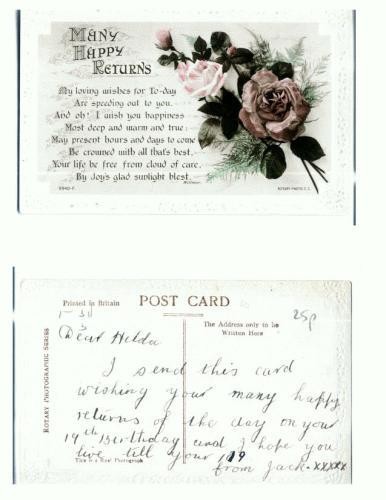 MANY
HAPPY
RETURNS
My loving wishes for To-day
Are speeding out to you.
And oh! I wish you happiness
Most deep and warm and true:
May present hours and days to come
Be crowned with all that's best,
Your life be free from cloud of care,
By Joy's glad sunlight blest.
ROTARY PHOTO E.C.
Printed in Britain
POST CARD
25p
The Address only to be
Written Here
ROTARY PHOTOGRAPHIC SERIES
Dear Hilda
I send this card
wishing your many happy
returns of the day on your
19th Birthday and I hope you
live till your 119
This is a Real Photograph
from Jack xxxxx